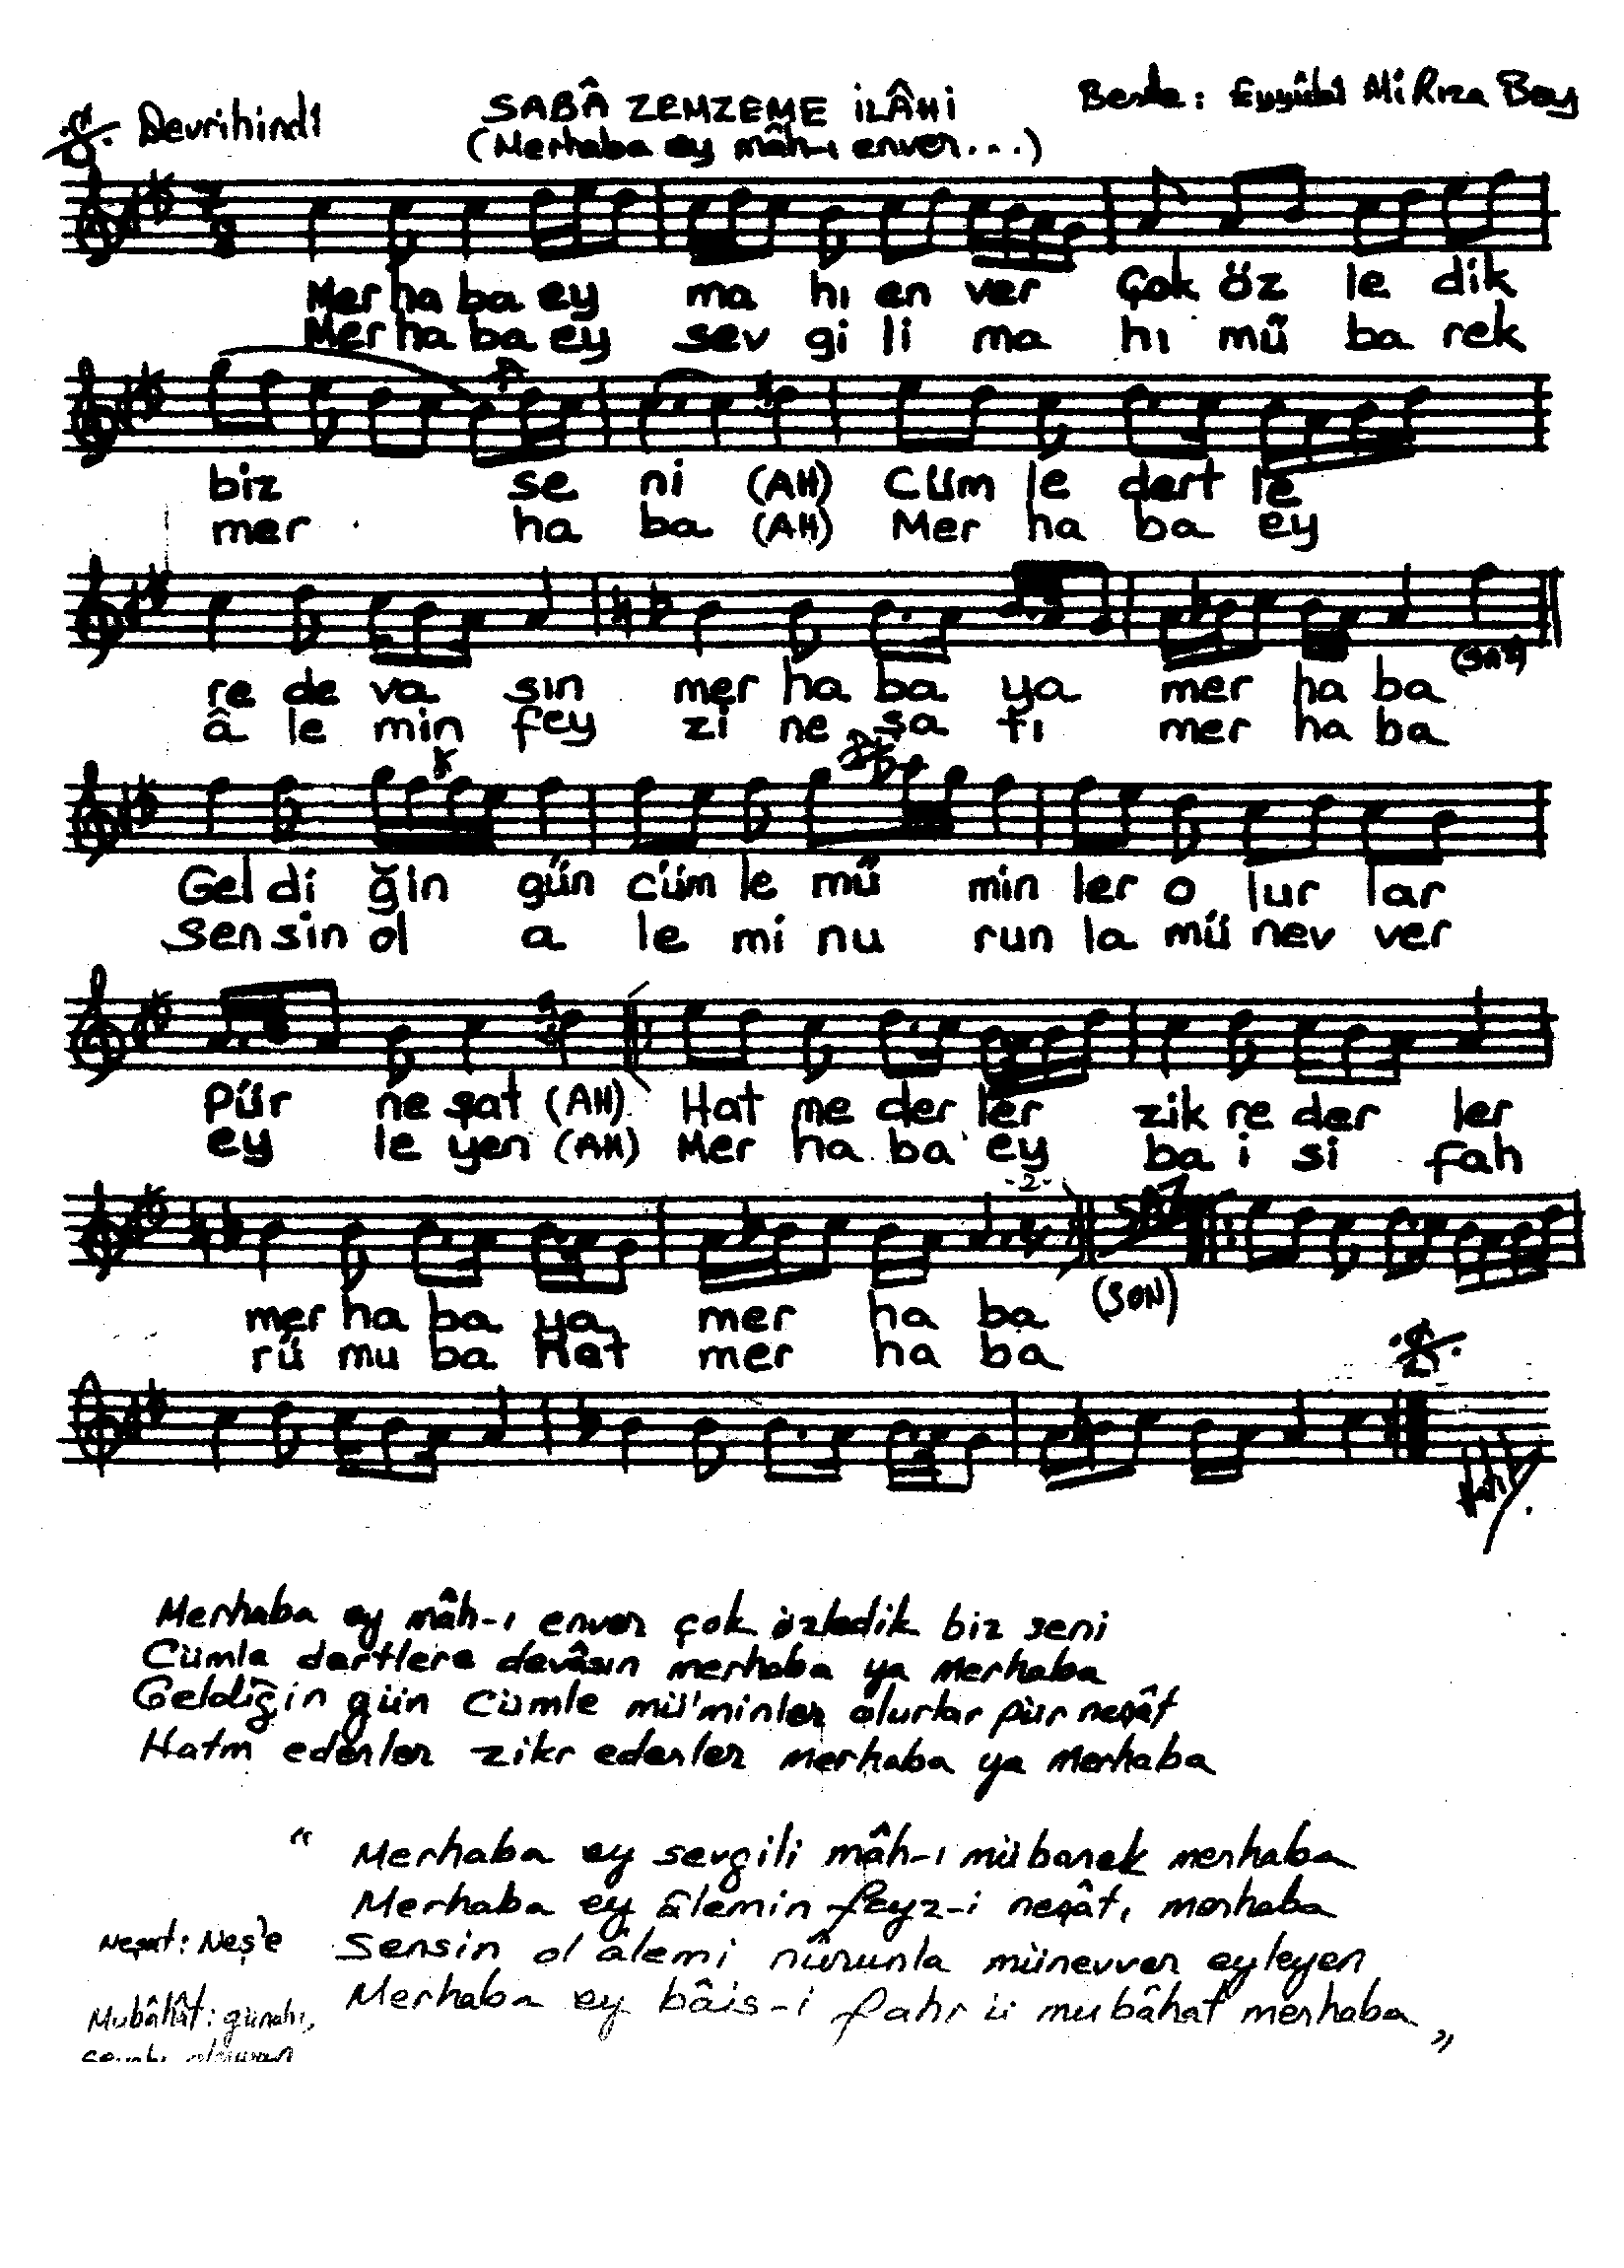 Devrihindî
SABÂ ZEMZEME İLÂHİ
Beste: Eyyübî Ali Rıza Bey
(Merhaba ey mâh-ı enver...)
7
8
Mer ha ba ey ma hı en ver Çok öz le dik
Mer ha ba ey sev gi li ma hı mü ba rek
biz se ni (AH) Cüm le dert le
mer ha ba (AH) Mer ha ba ey
(SAZ)
re de va sın mer ha ba ya mer ha ba
â le min fey zi ne şa tı mer ha ba
Gel di ğin gün cüm le mü min ler o lur lar
Sen sin ol a le mi nu run la mü nev ver
Pür ne şat (AH) Hat me der ler zik re der ler
ey le yen (AH) Mer ha ba ey ba i si fah
-2-
SAZ
(SON)
mer ha ba ya mer ha ba
rü mu ba hat mer ha ba
Merhaba ey mâh-ı enver çok özledik biz seni
Cümle dertlere devâsın merhaba ya merhaba
Geldiğin gün cümle mü'minler olurlar pür neşât
Hatm ederler zikr ederler merhaba ya merhaba
" Merhaba ey sevgili mâh-ı mübarek merhaba
Merhaba ey âlemin feyz-i neşâtı merhaba
Neşat: Neş'e
Sensin ol âlemi nûrunla münevver eyleyen
Merhaba ey bâis-i fahr ü mubâhat merhaba "
Mubâhât: günahı,